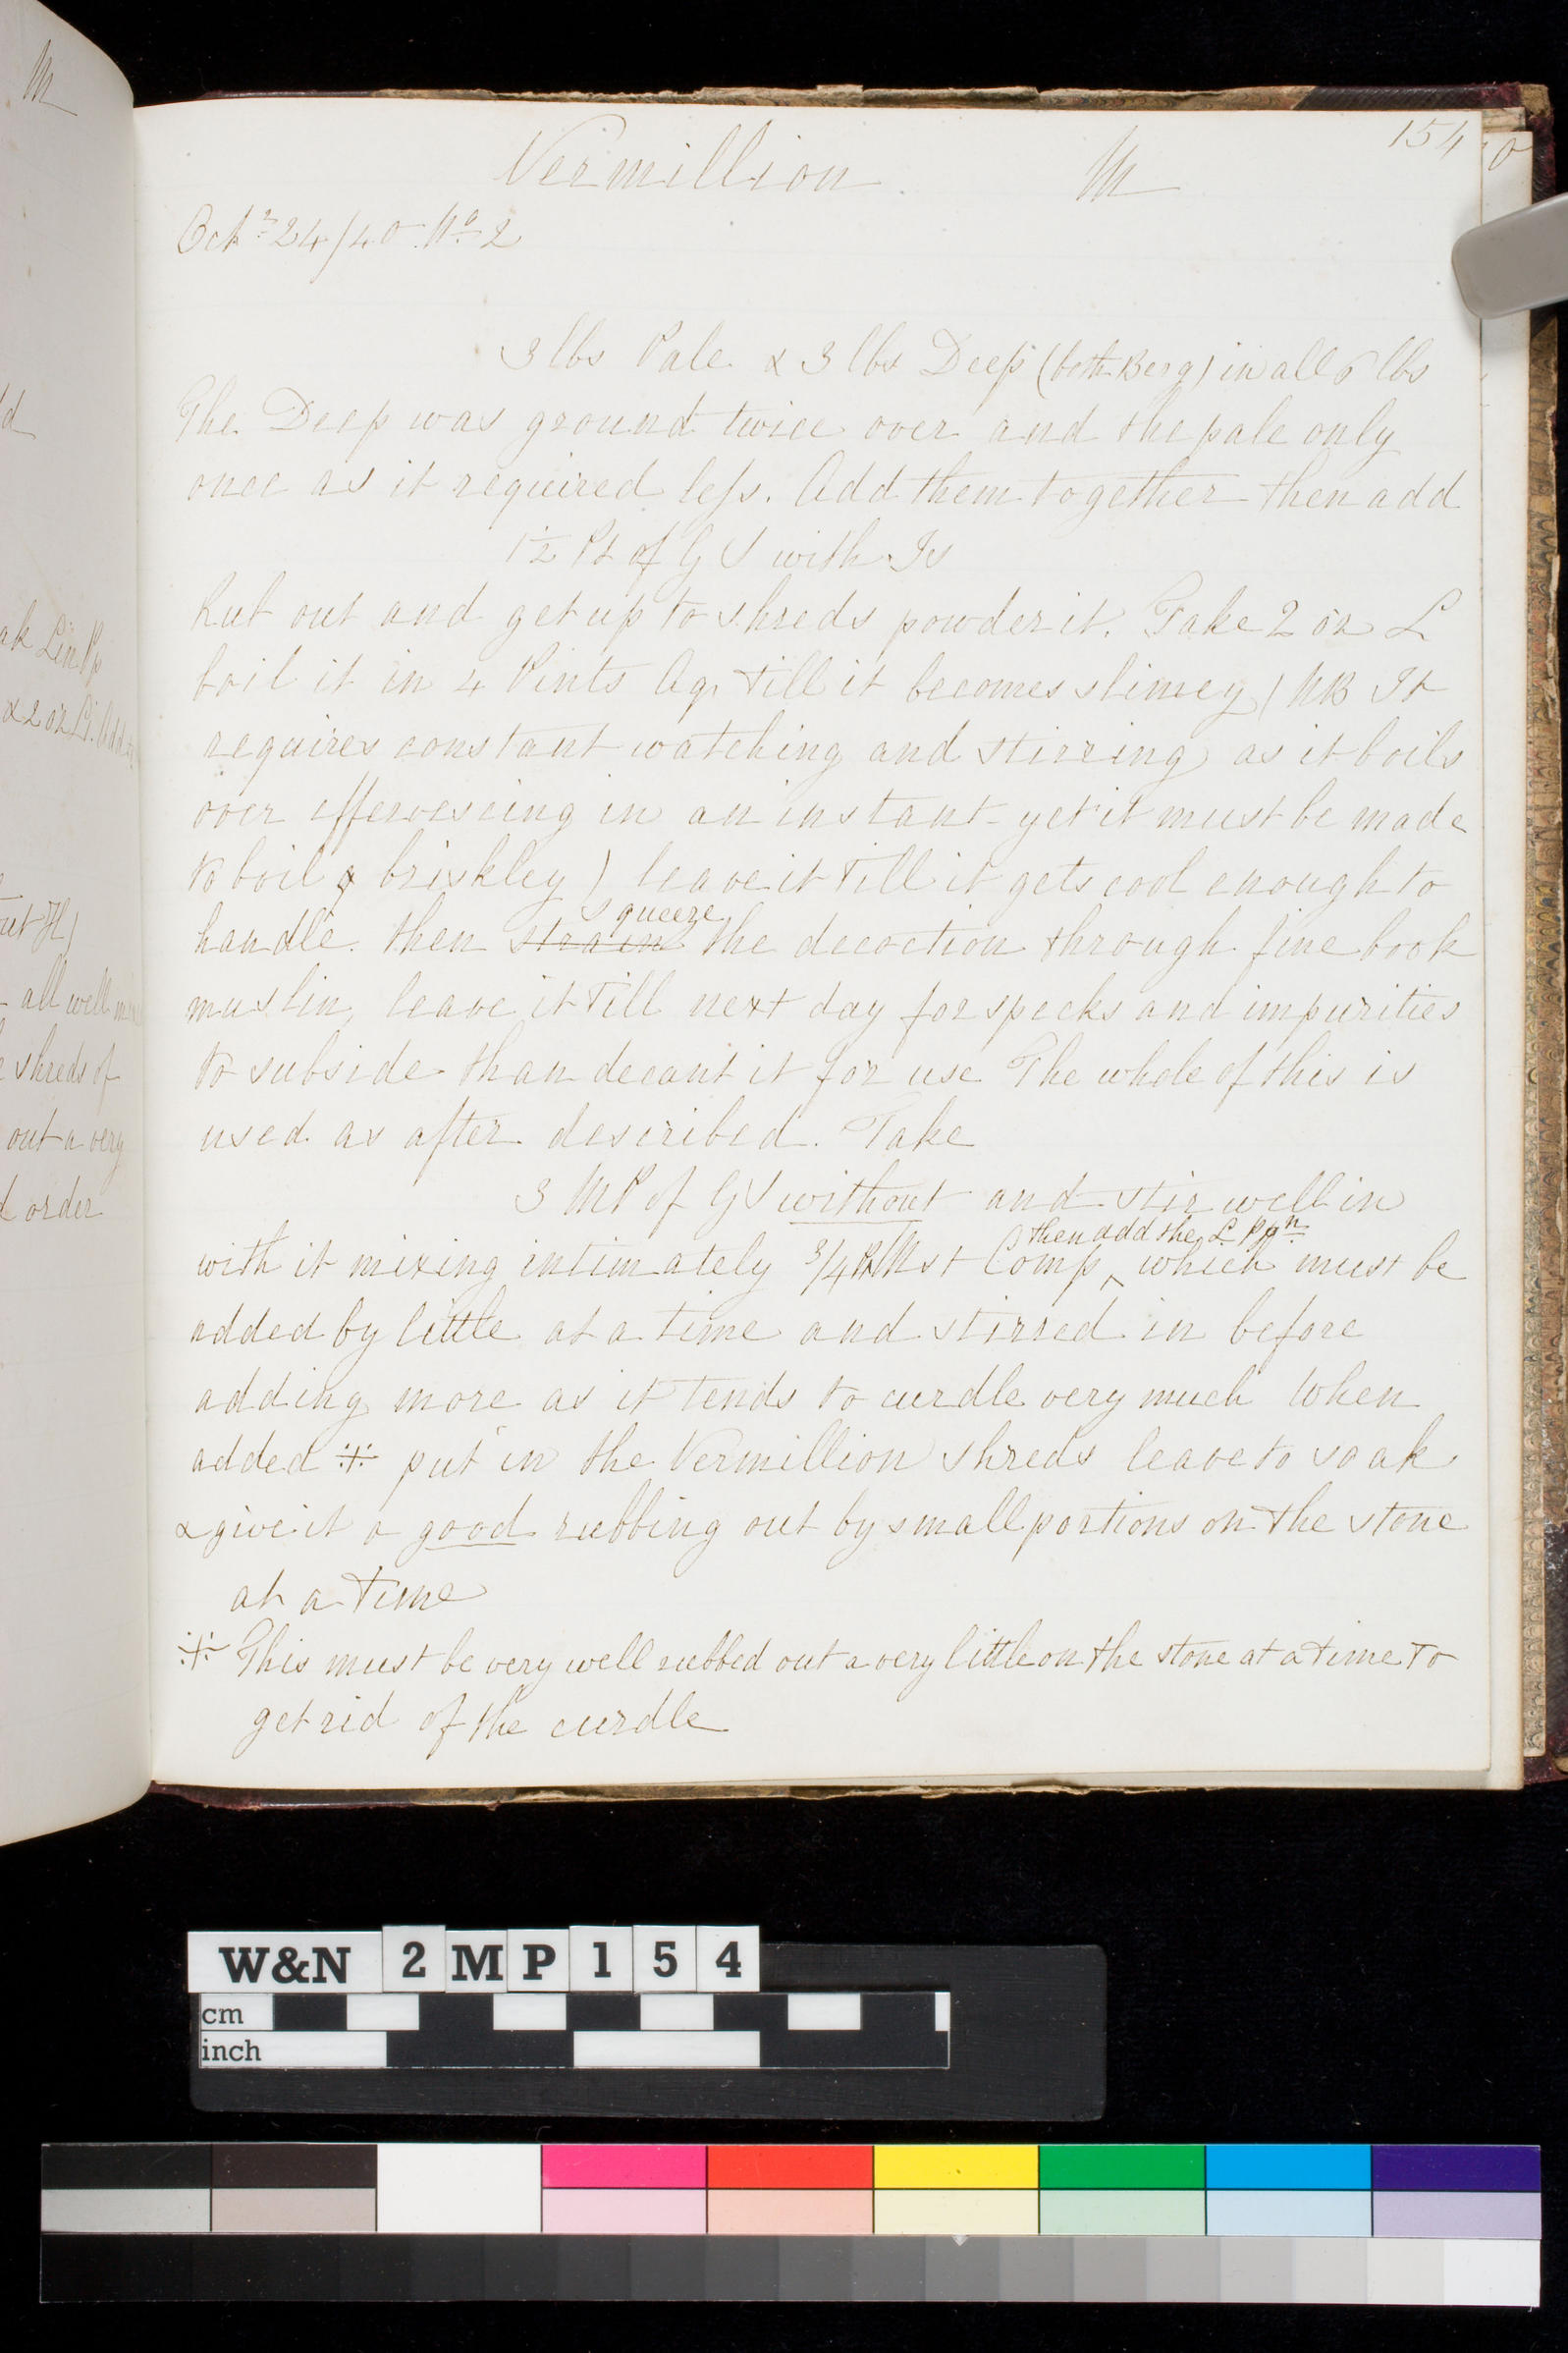 M
154
Vermillion. M
Octr 24/40 No 2
3 lbs Pale & 3 lbs Deep (both Berg) in all 6 lbs
The Deep was ground twice over and the pale only
once as it required less. Add them together then add
1½ Pt of G S with Is
Rub out and get up to shreds powder it. Take 2 oz L
boil it in 4 Pints Aq, till it becomes slimey (NB It
requires constant watching and stirring as it boils
over effervescing in an instant yet it must be made
to boil briskley) leave it till it gets cool enough to
handle. then strain squeeze the decoction through fine book
muslin, leave it till next day for specks and impurities
to subside than decant it for use The whole of this is
used as after described. Take
3 MP of G S without and stir well in
with it mixing intimately 3/4 Mst Comp, then add the L Ppn which must be
added by little at a time and stirred in before
adding more as it tends to curdle very much When
added ※ put in the Vermillion shreds leave to soak
& give it a good rubbing out by small portions on the stone
at a time
※ This must be very well rubbed out a very little on the stone at a time to
get rid of the curdle
ak Lin Pp
& 2 oz
out H)
all well
shreds of
out a very
order
W&N 2 M P 1 5 4
cm
inch